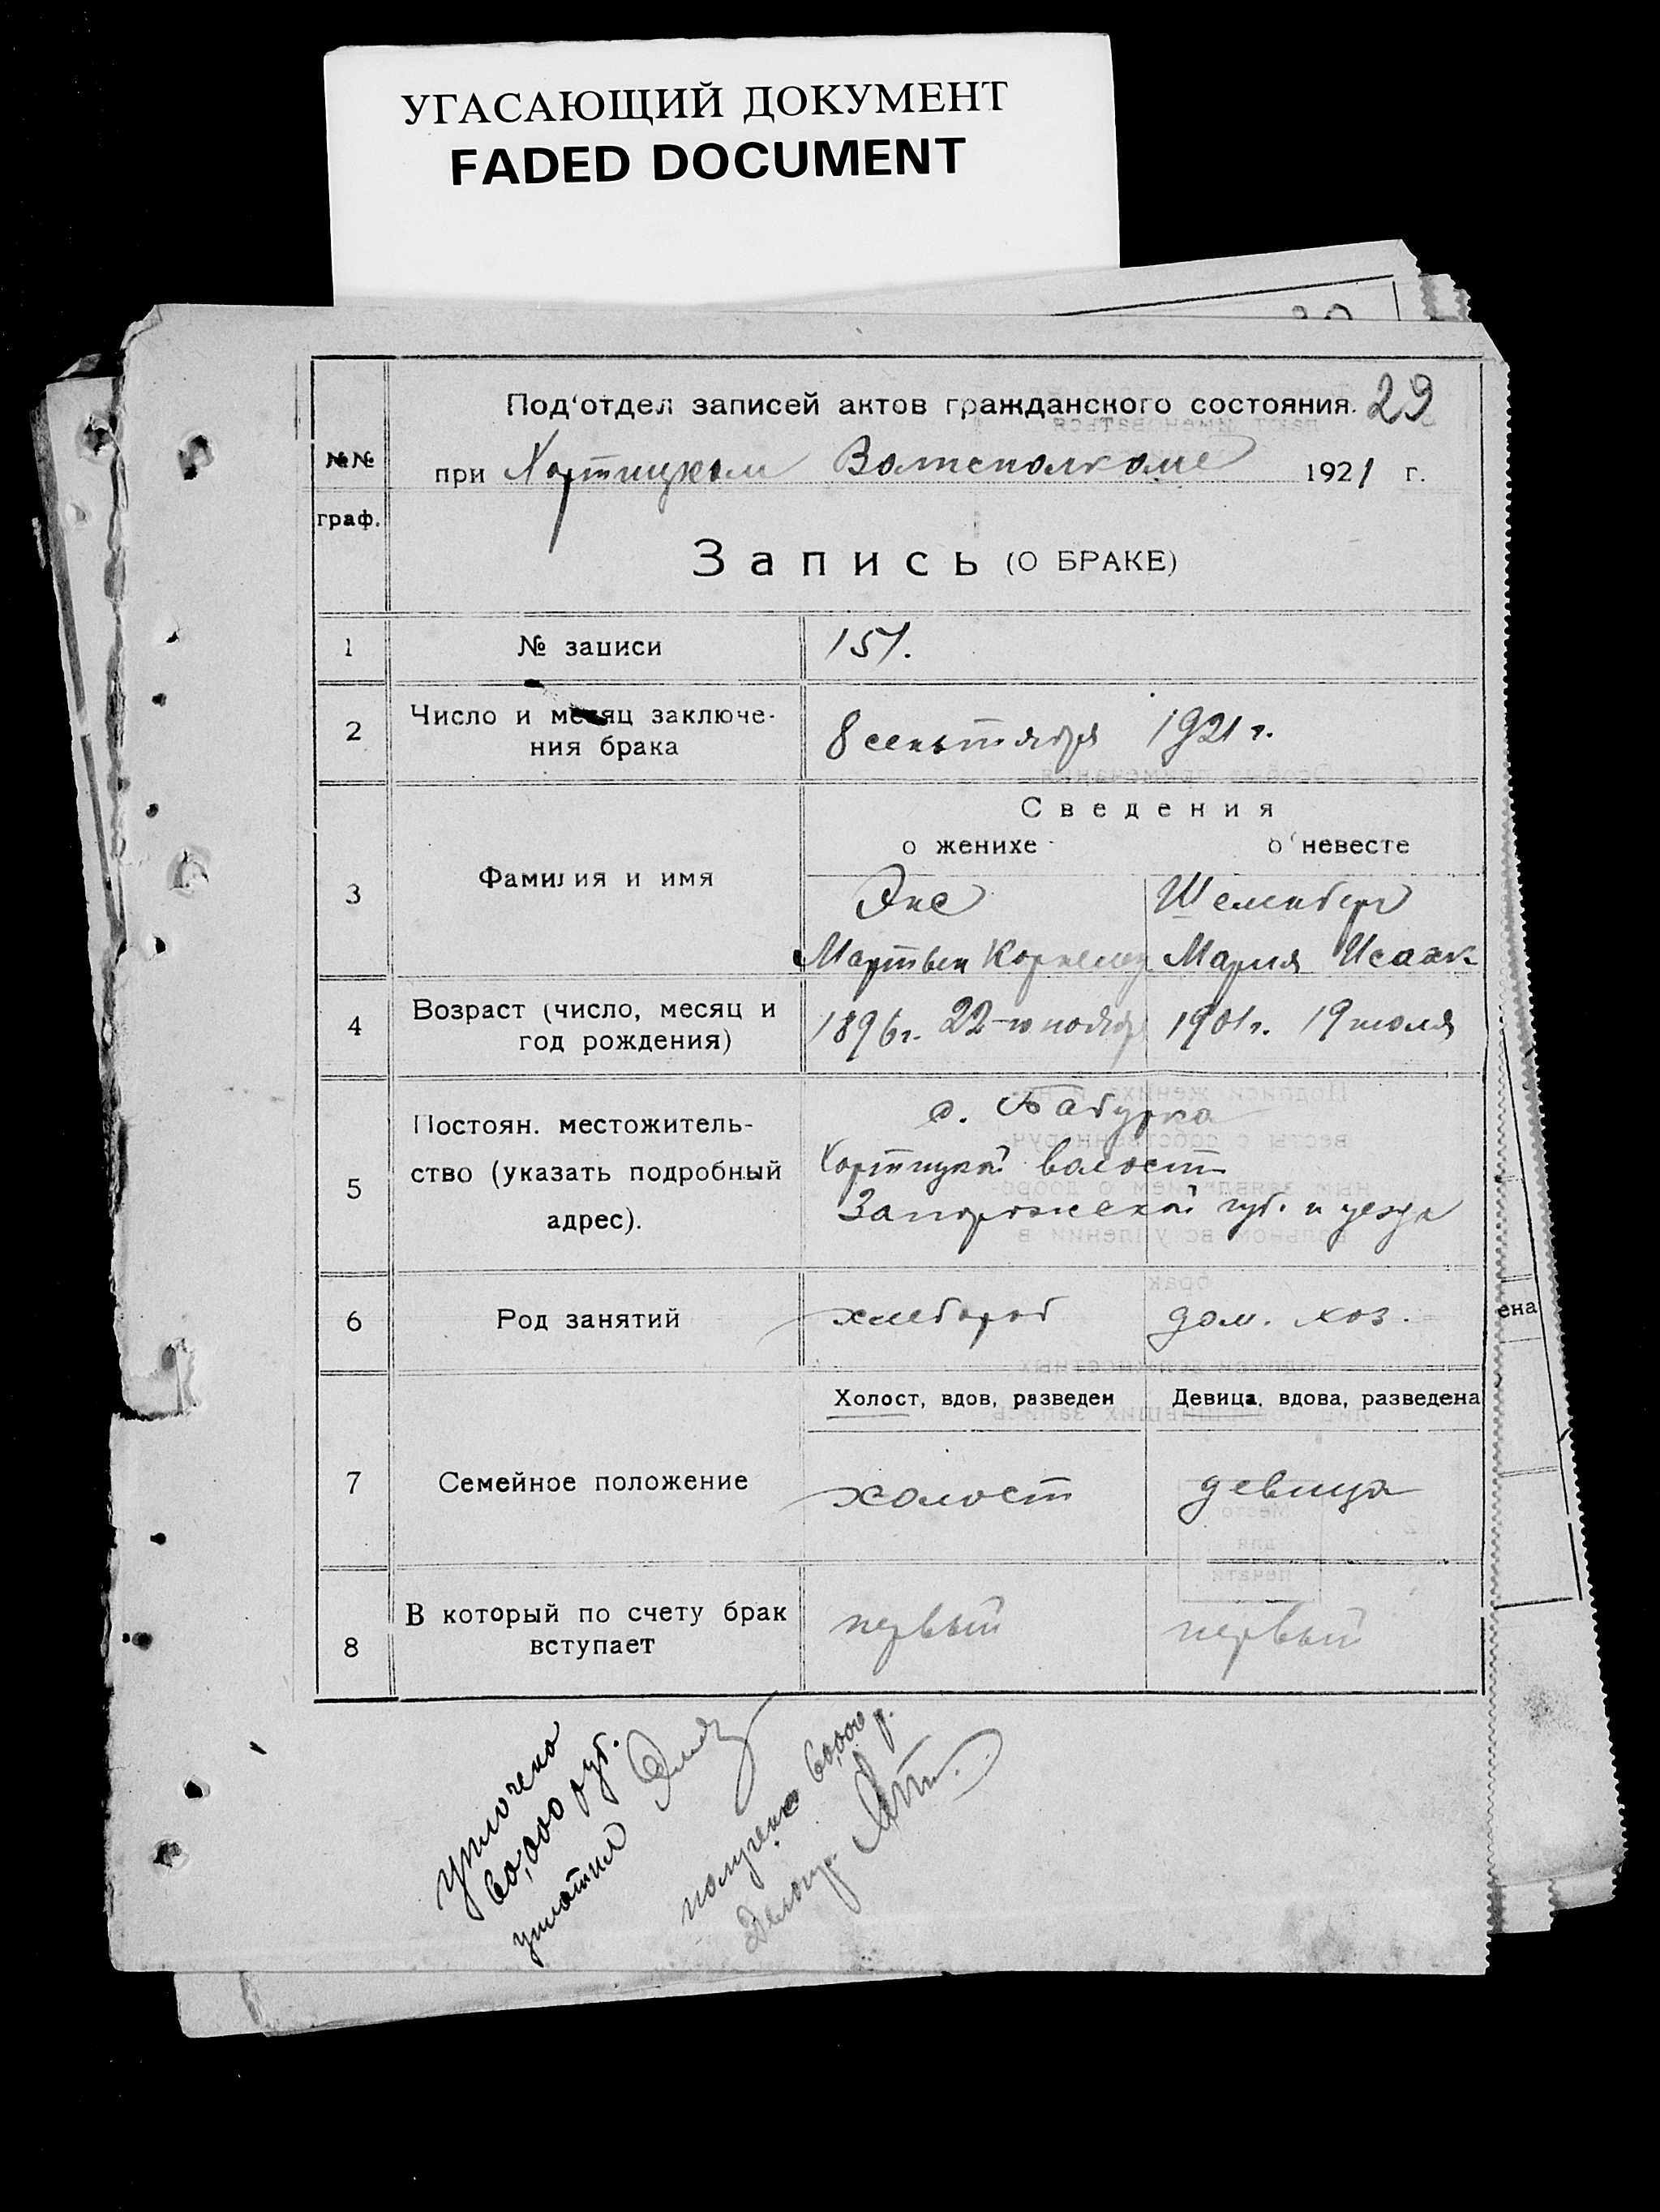 УГАСАЮЩИЙ ДОКУМЕНТ
FADED DOCUMENT
Под'отдел записей актов гражданского состояния. 29
№№ граф.
при Хортицком Волисполкоме 1921 г.
Запись (О БРАКЕ)
1 № записи 151.
2 Число и месяц заключе-
ния брака 8 сентября 1921 г.
Сведения
о женихе о невесте
3 Фамилия и имя
Энс Шеленберг
Мартын Корнеев Мария Исаак
4 Возраст (число, месяц и
год рождения)
1896г. 22-го ноября 1901г. 19 июля
5 Постоян. местожитель-
ство (указать подробный
адрес).
с. Бабурка
Хортицкой волост
Запорожской губ. и уезда
6 Род занятий хлебороб дом. хоз.
Холост, вдов, разведен Девица, вдова, разведена
7 Семейное положение холост девица
8 В который по счету брак
вступает первый первый
уплочено
60,000 руб.
уплатил
получено 60,000 р.
Делопр.
ена